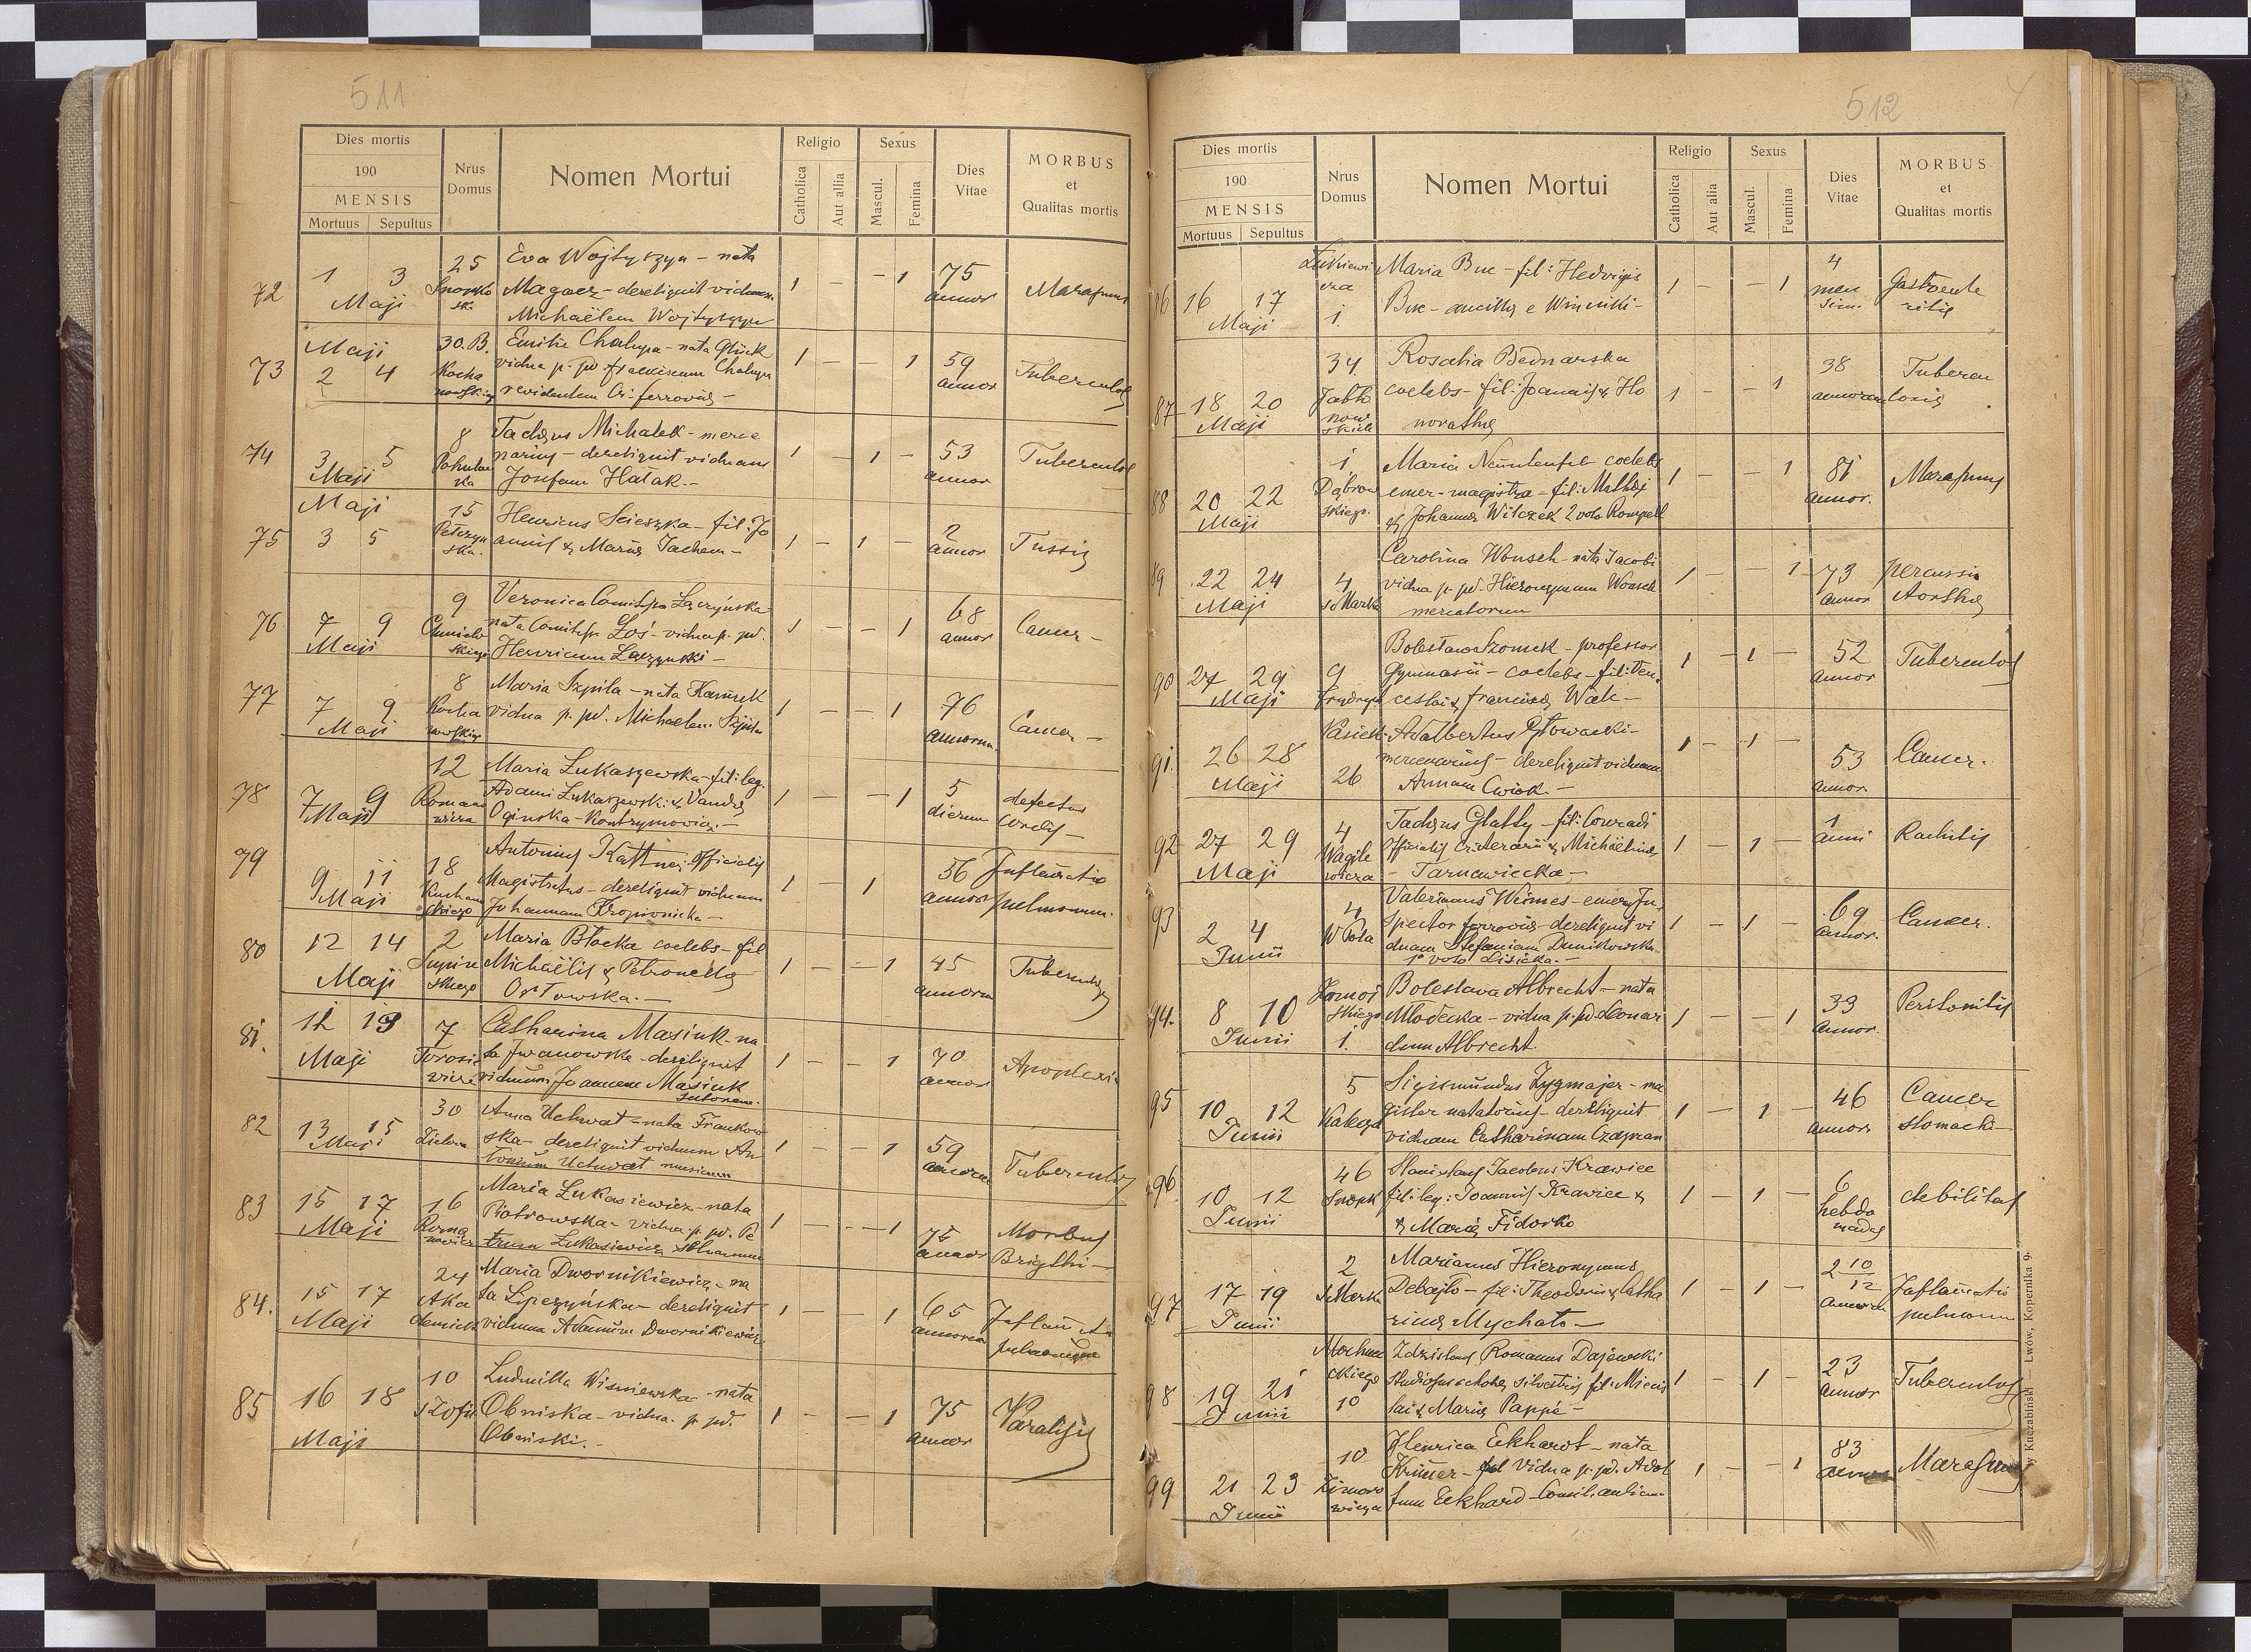 511
Dies mortis
190
MENSIS
Mortuus Sepultus
Nrus Domus
Nomen Mortui
Religio
Catholica
Aut allia
Sexus
Mascul.
Femina
Dies Vitae
MORBUS
et
Qualitas mortis
72 1 3 Maji 25
Eva Wojtyszyn - nata
Magocz - dereliquit viduum
Michaëlem Wojtyszyn
1 - - 1 75 annor Marasmus
73 Maji 2 4 30. B. Kochanowskiego
Emilie Chalupa - nata Glück
vidua p. pd. Franciscum Chalupa
revidentem Cr. ferroviae -
1 - - 1 59 annor Tuberculos
74 3 5 Maji 8
Tadeus Michalek - merce
narius - dereliquit viduam
Josefam Hałak. -
1 - 1 - 53 annor Tuberculos
75 Maji 3 5 15 Pełczyńska.
Henricus Scieszka - fil: Jo
annis & Mariae Jachem -
1 - 1 - 2 annor Tussis
76 7 9 Maji 9
Veronica Comitssa Łączyńska
nata Comitssa Łoś - vidua p. pd.
Henricum Łączyński -
1 - - 1 68 annor Cancer -
77 7 9 Maji 8 Kochanowskiego
Maria Szpila - nata Karusek
vidua p. pd. Michaelem Szpila
1 - - 1 76 annorum Cancer -
78 7 9 Maji 12 Romanowicza
Maria Łukaszewska - fil: leg.
Adami Łukaszewski & Vandae
Oginska - Kontrymowicz. -
1 - - 1 5 dierum defectus cordis -
79 9 11 Maji 18
Antonius Kattner officialis
Magistratus - dereliquit viduam
Johannam Kropiwnicka -
1 - 1 56 annor Inflamatio pulmonum.
80 12 14 Maji 2 Supińskiego
Maria Błocka coelebs - fil
Michaëlis & Petronella
Orłowska. -
1 - - 1 45 annorum Tuberculos
81. 12 13 Maji 7 Torosiewicza
Catharina Masiuk - na
ta Iwanowska - dereliquit
viduum Joannem Masiuk
sutorem.
1 - - 1 70 annor Apoplexia
82 13 15 Maji 30 Zielona
Anna Uchwat - nata Frankow
ska - dereliquit viduum An
tonium Uchwat musicum
1 - - 1 59 annorum Tuberculos
83 15 17 Maji 16 Romanowicza
Maria Łukasiewicz - nata
Piotrowska - vidua p. pd. Pe
trum Łukasiewicz
1 - - 1 75 annor Morbus Brigthi -
84. 15 17 Maji 24 Akademicka
Maria Dwornikiewicz - na
ta Lipczyńska - dereliquit
viduum Adamum Dwornikiewicz
1 - - 1 65 annorum pulmonum
85 16 18 Maji 10 s Zofii
Ludmilla Wiśniewska - nata
Obniska - vidua p. pd.
Obniski. -
1 - - 1 75 annor Paralisis
512
Dies mortis
190
MENSIS
Mortuus Sepultus
Nrus Domus
Nomen Mortui
Religio
Catholica
Aut alia
Sexus
Mascul.
Femina
Dies Vitae
MORBUS
et
Qualitas mortis
86 16 17 Maji 1.
Maria Buc - fil: Hedvigis
Buc - ancillae e Winniki -
1 - - 1 4 mensium. Gastroenteritis
87 18 20 Maji 34 Jabłonowskich
Rosalia Bednarska
coelebs - fil: Joannis & Ho
norathae
1 - - 1 38 annorum Tuberculosis
88 20 22 Maji 1 Dąbrowskiego.
Maria coelebs
emer - magistra - fil: Mathei
& Johannae Wilczek 2 voto
1 - - 1 81 annor. Marasmus
89 22 24 Maji 4 s Marka
Carolina Wonsch - nata Jacobi
vidua p. pd. Hieronymum Wonsch
mercatorem
1 - - 1 73 annor
90 27 29 Maji 9
professor
Gymnasii - coelebs - fil: Ven
ceslai & Franciscae Wak -
1 - 1 - 52 annor Tuberculos
91. 26 28 Maji 26
Adalbertus Głowacki -
mercenarius - dereliquit viduam
Annam Cwiok. -
1 - 1 - 53 annor Cancer.
92 27 29 Maji 4 Wagilewicza
Tadeus Glatty - fil: Conradi
officialis & Michëlinae
- Tarnawiecka -
1 - 1 - 1 anni Rachitis
93 2 4 Junii 4 W Pola
Valerianus Weimes - emer. In
spector ferroviae - dereliquit vi
duam Stefaniam Dunikowska
1º voto Lisicka. -
1 - 1 - 69 annor. Cancer.
94. 8 10 Junii Zamojskiego 1.
Boleslava Albrecht - nata
Młodecka - vidua p. pd. Leonar
dum Albrecht.
1 - - 1 33 annor. Peritonitis
95 10 12 Junii 5 Kalecza
Sigismundus Zygmajer - ma
gister natatorius - dereliquit
viduam Catharinam Czapran
1 - 1 - 46 annor. Cancer stomachi -
96 10 12 Junii 46 Snopk
Stanislaus Jacobus Krawiec
fil: leg: Joannis Krawiec &
& Mariae Fidorko
1 - 1 - 6 hebdomadas debilitas
97 17 19 Junii 2 s Marka
Marianus Hieronymus
Debajło - fil: Theodori & Catha
rinae Mychato -
1 - 1 - 2 10/12 annorum Inflamatio pulmonum
98 19 21 Junii Mochnackiego 10
Zdzislaus Romanus Dajewski
studiosus scholae silvestris fil: Miecis
lai & Mariae Pappé -
1 - 1 - 23 annor Tuberculos
99 21 23 Junii 10 Zimorowicza
Henrica Eckhardt - nata
Krüner - vidua p. pd. Adol
fum Eckhard Consil. aulicum
1 - - 1 83 annorum Marasmus
Kuczabiński — Lwów, Kopernika 9.